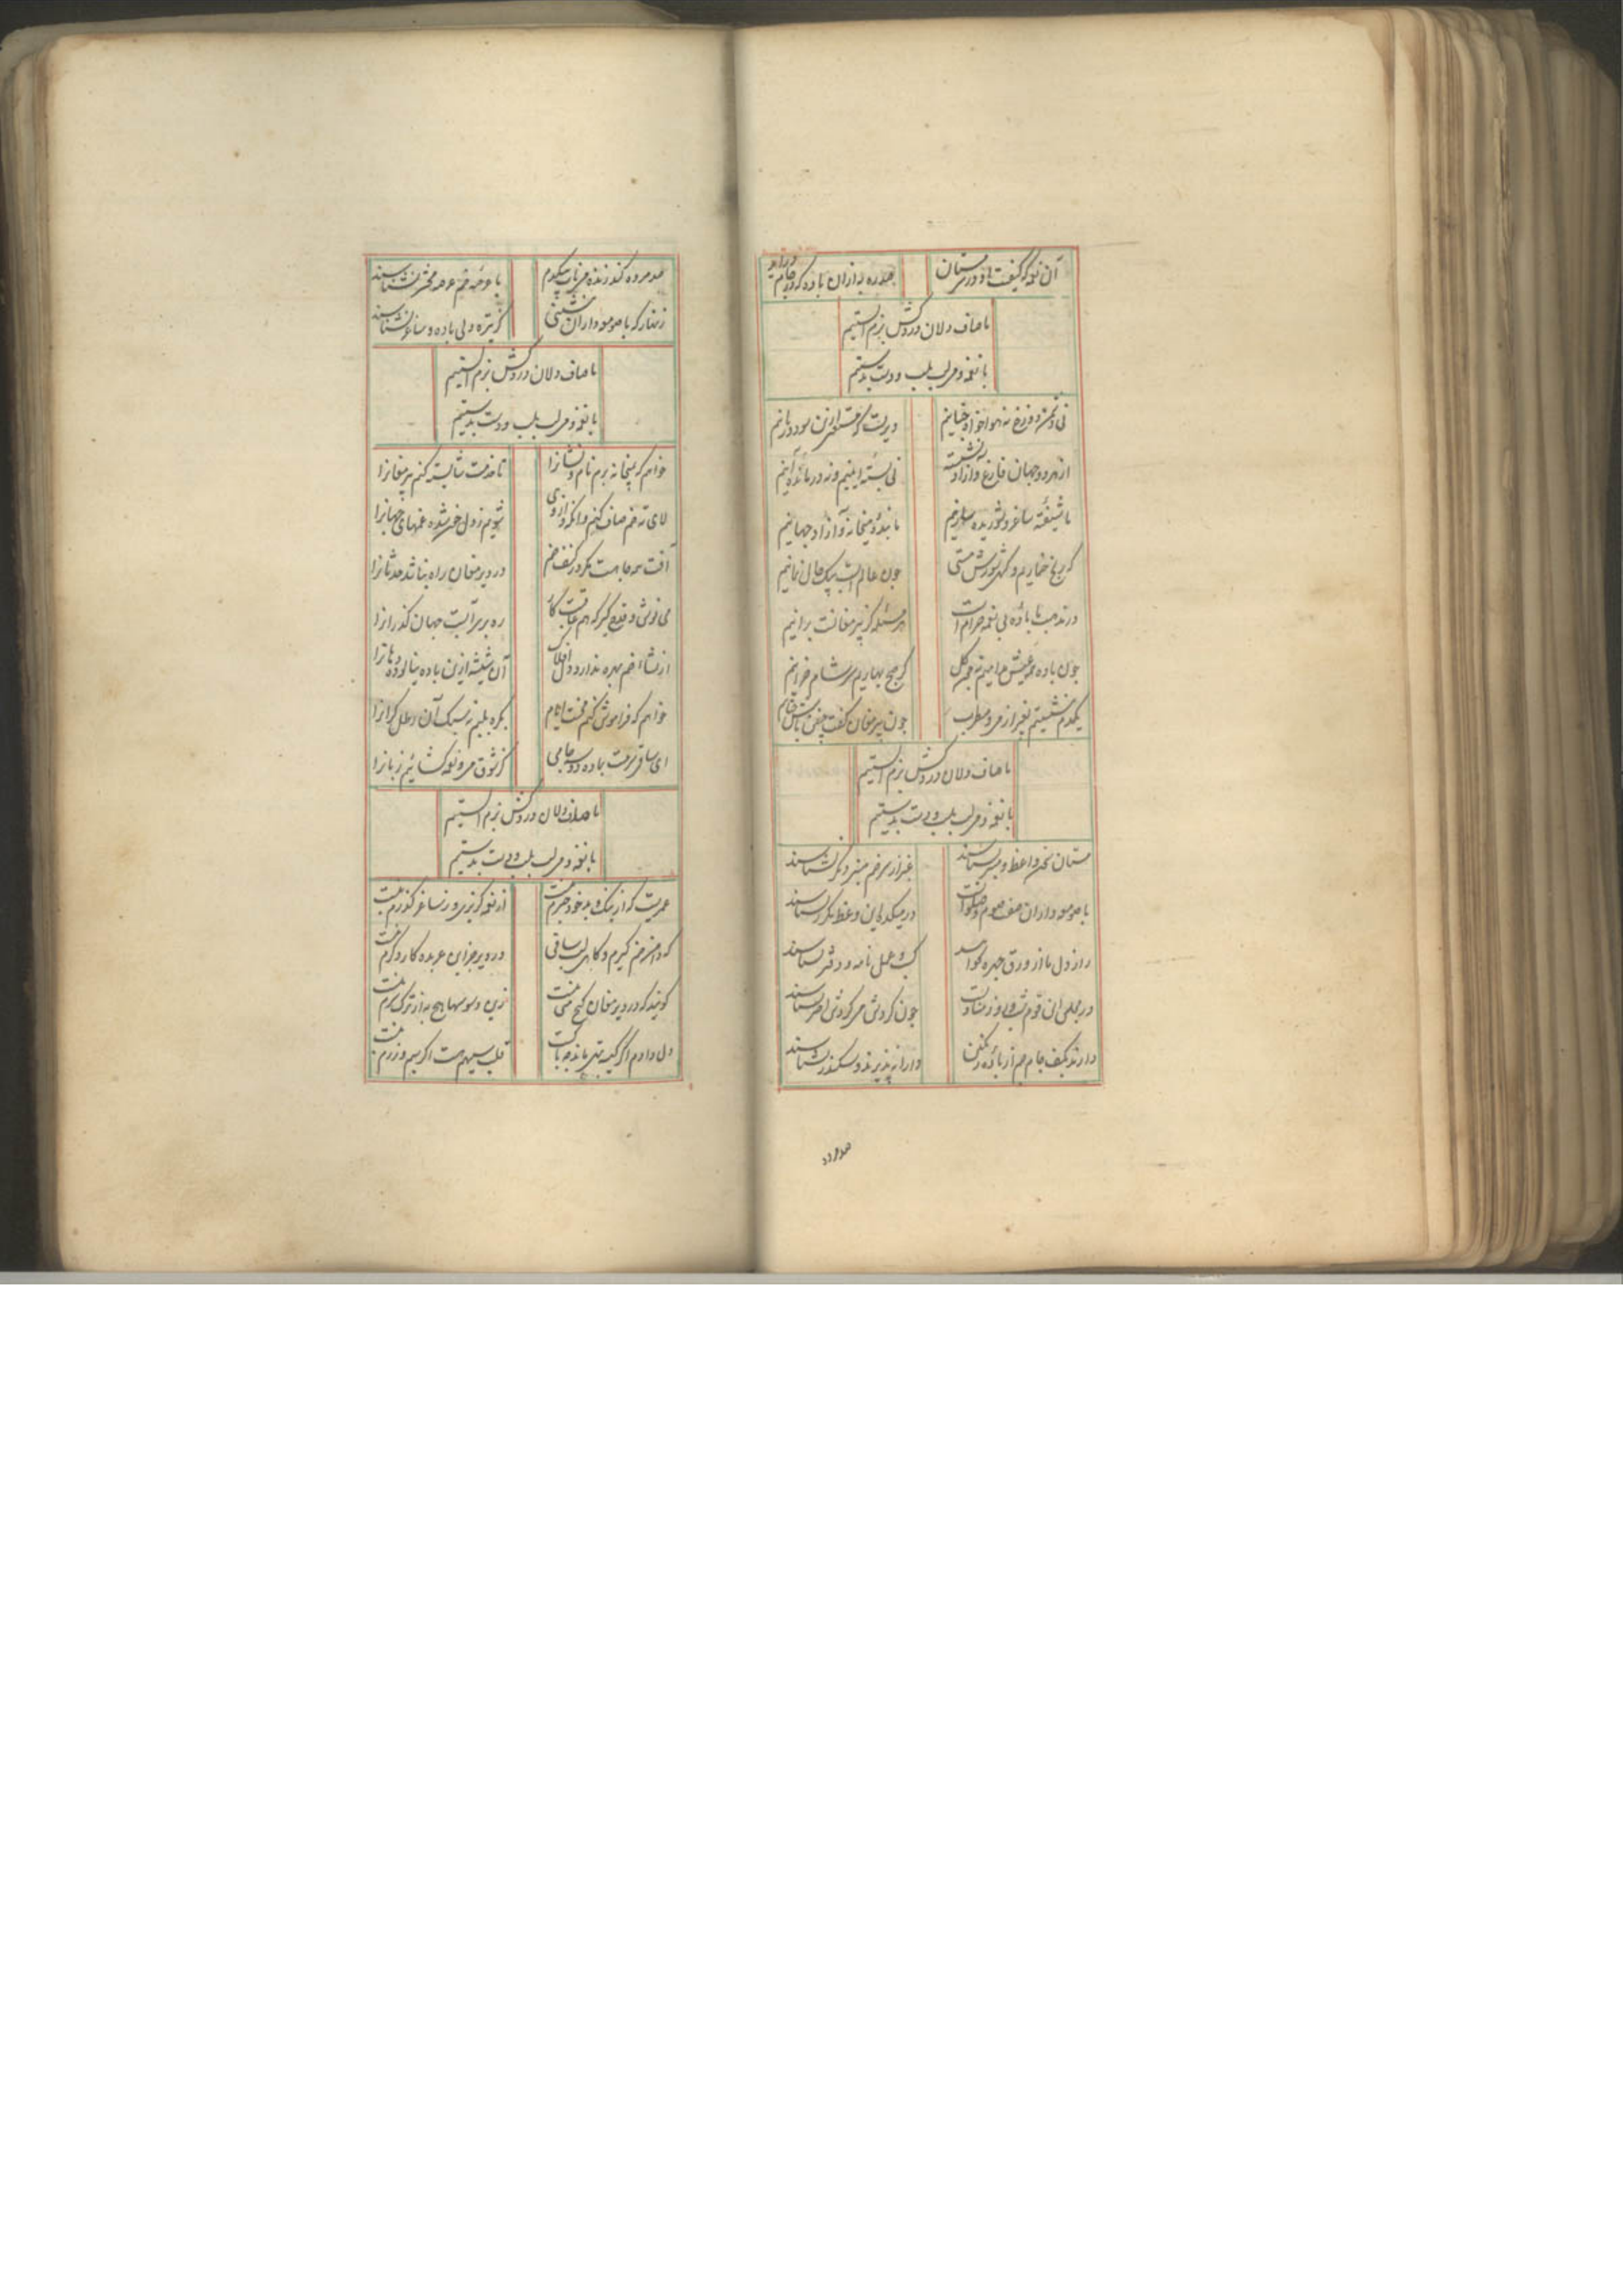 آن نغمه که کیفیت او در سر مستان
صد ره به ازان باده که در جام درآید
ما صاف دلان دردکش بزم الستیم
با نغمه و می لب بلب و دست بدستیم
نی دشمن دوزخ نه هواخواه جنانیم
دیریست که مستغنی ازین سود و زیانیم
از هر دو جهان فارغ و آزاد نشسته
نی بسته اینیم و نه درمانده آنیم
ما شیفته ساغر و شوریده سازیم
ما بنده میخانه و آزاد جهانیم
که رنج خماریم و کهی شورش مستی
چون عالم آب بیک حال نمانیم
در مذهب ما باده بی نغمه حرام است
هر مسئله کز پیر مغانست برانیم
چون باده
که صبح بهاریم و که شام خزانیم
یکدم ننشینیم بغیر از می و مطرب
چون پیر مغان گفت چنین باش چنانیم
ما صاف دلان دردکش بزم الستیم
با نغمه و می لب بلب و دست بدستیم
مستان سخن واعظ و منبر نشناسند
غیر از سر خم منبر دیگر نشناسند
با صومعه داران صف صوم و صلوات
در میکده این وعظ مکرر نشناسند
راز دل ما از ورق چهره بخوانند
کیین طایفه نامه و دفتر نشناسند
در مجلس این قوم
چون گردش می گردش اختر نشناسند
دارند بکف جام جم از باده رنگین
دارا نپذیرند و سکندر نشناسند
صد مرده
صد مرده کند زنده می ناب بیکدم
با عرصه خم عرصه محشر نشناسند
زنهار که با صومعه داران ننشینی
باده و ساغر نشناسند
ما صاف دلان دردکش بزم الستیم
با نغمه و می لب بلب و دست بدستیم
خواهم که بمیخانه برم نام و نشانرا
تا خدمت شایسته کنم پیر مغانرا
لای ته خم صاف کنم وانکه ازو می
شویم ز دل غمزده غمهای جهانرا
آفت همه جا هست مگر در کنف خم
در دیر مغان راه نباشد حدثانرا
می نوش و قدح گیر که هم عاقبت کار
ره بر سر آبست جهان گذرانرا
از نشاء خم بهره ندارد دل افلاک
آن شیشه ازین باده نیالوده دهانرا
خواهم که فراموش کنم محنت ایام
رطل گرانرا
ای ساقی سرمست بده دو سه جامی
کز شوق می و نغمه گشائیم زبانرا
ما صاف دلان دردکش بزم الستیم
با نغمه و می لب بلب و دست بدستیم
عمریست که از نیک و بد خود خبرم نیست
از نغمه گزیری و ز ساغر گذرم نیست
که دامن خم گیرم و گاهی لب ساقی
در دیر جز این عربده کار دگرم نیست
گویند که در دیر مغان هیچ
زین وسوسها هیچ به از ترک سرم نیست
دل دادم اگر کیسه تهی ماند چه باکست
قلب سیهم هست اگر سیم و زرم نیست